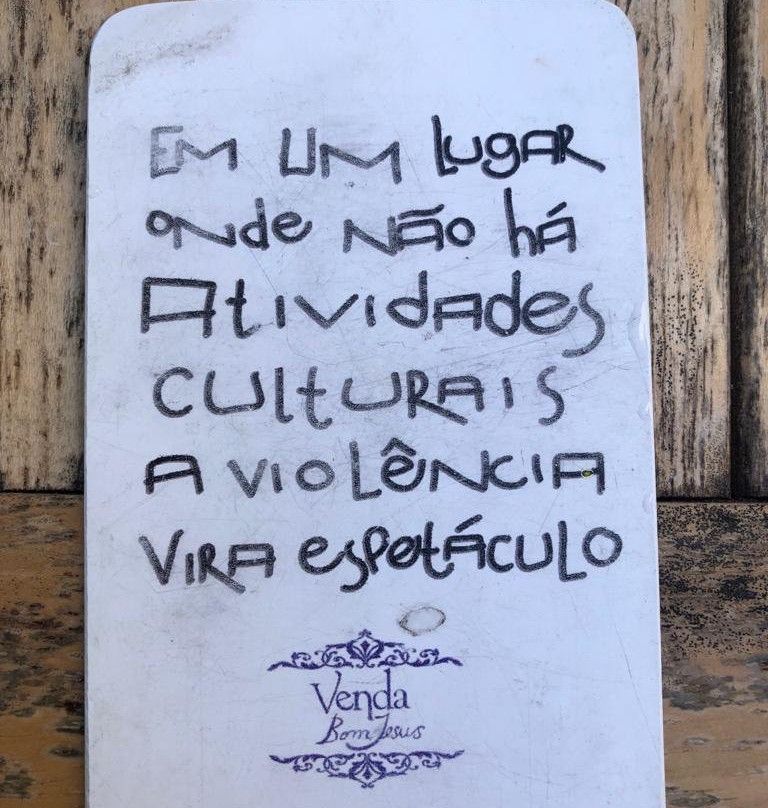 Em um lugar
onde não há
Atividades
culturais
a violência
vira espetáculo
Venda
Bom Jesus